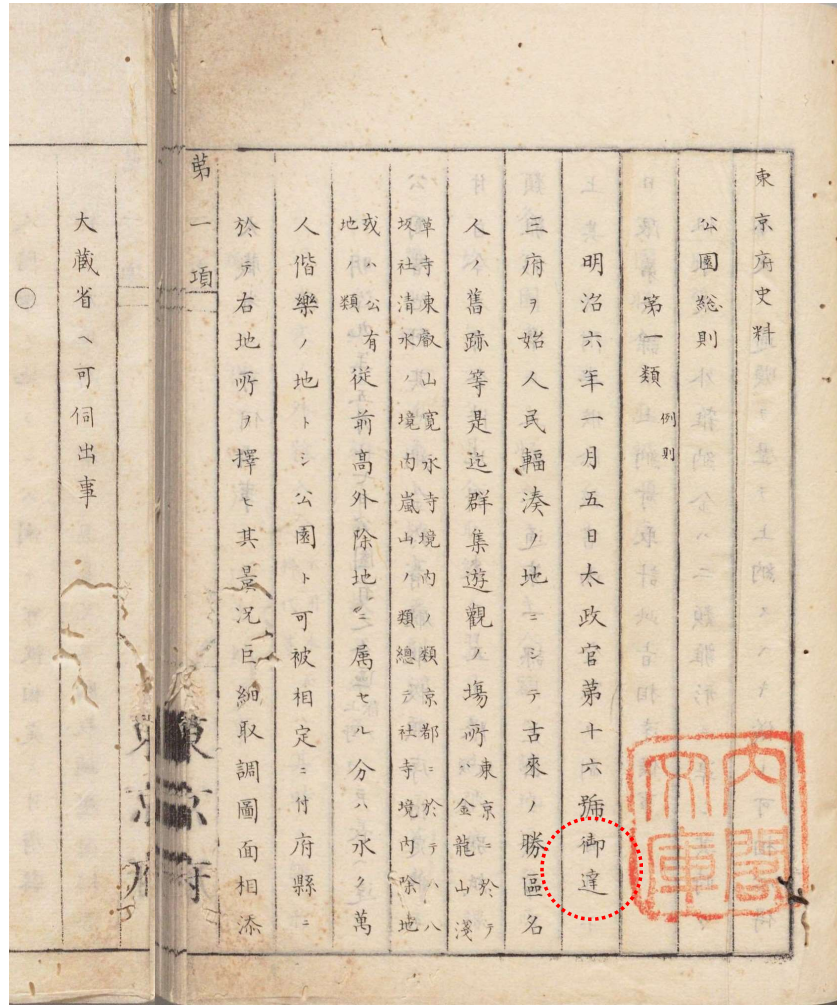 東京府史料
公園総則
第一類 例則
明治六年一月五日太政官第十六號御達
三府ヲ始人民輻湊ノ地ニシテ古來ノ勝區名
人ノ舊跡等是迄群集遊觀ノ場所東京ニ於テ
ハ金龍山淺
草寺東叡山寛永寺境内ノ類京都ニ於テハ八
坂社清水ノ境内嵐山ノ類總テ社寺境内除地
或ハ公有
地ノ類従前高外除地ニ属セル分ハ永ク萬
人偕樂ノ地トシ公園ト可被相定ニ付府縣ニ
於テ右地所ヲ擇ヒ其景況巨細取調圖面相添
第一項
東京府
大蔵省ヘ可伺出事
○
内閣
文庫